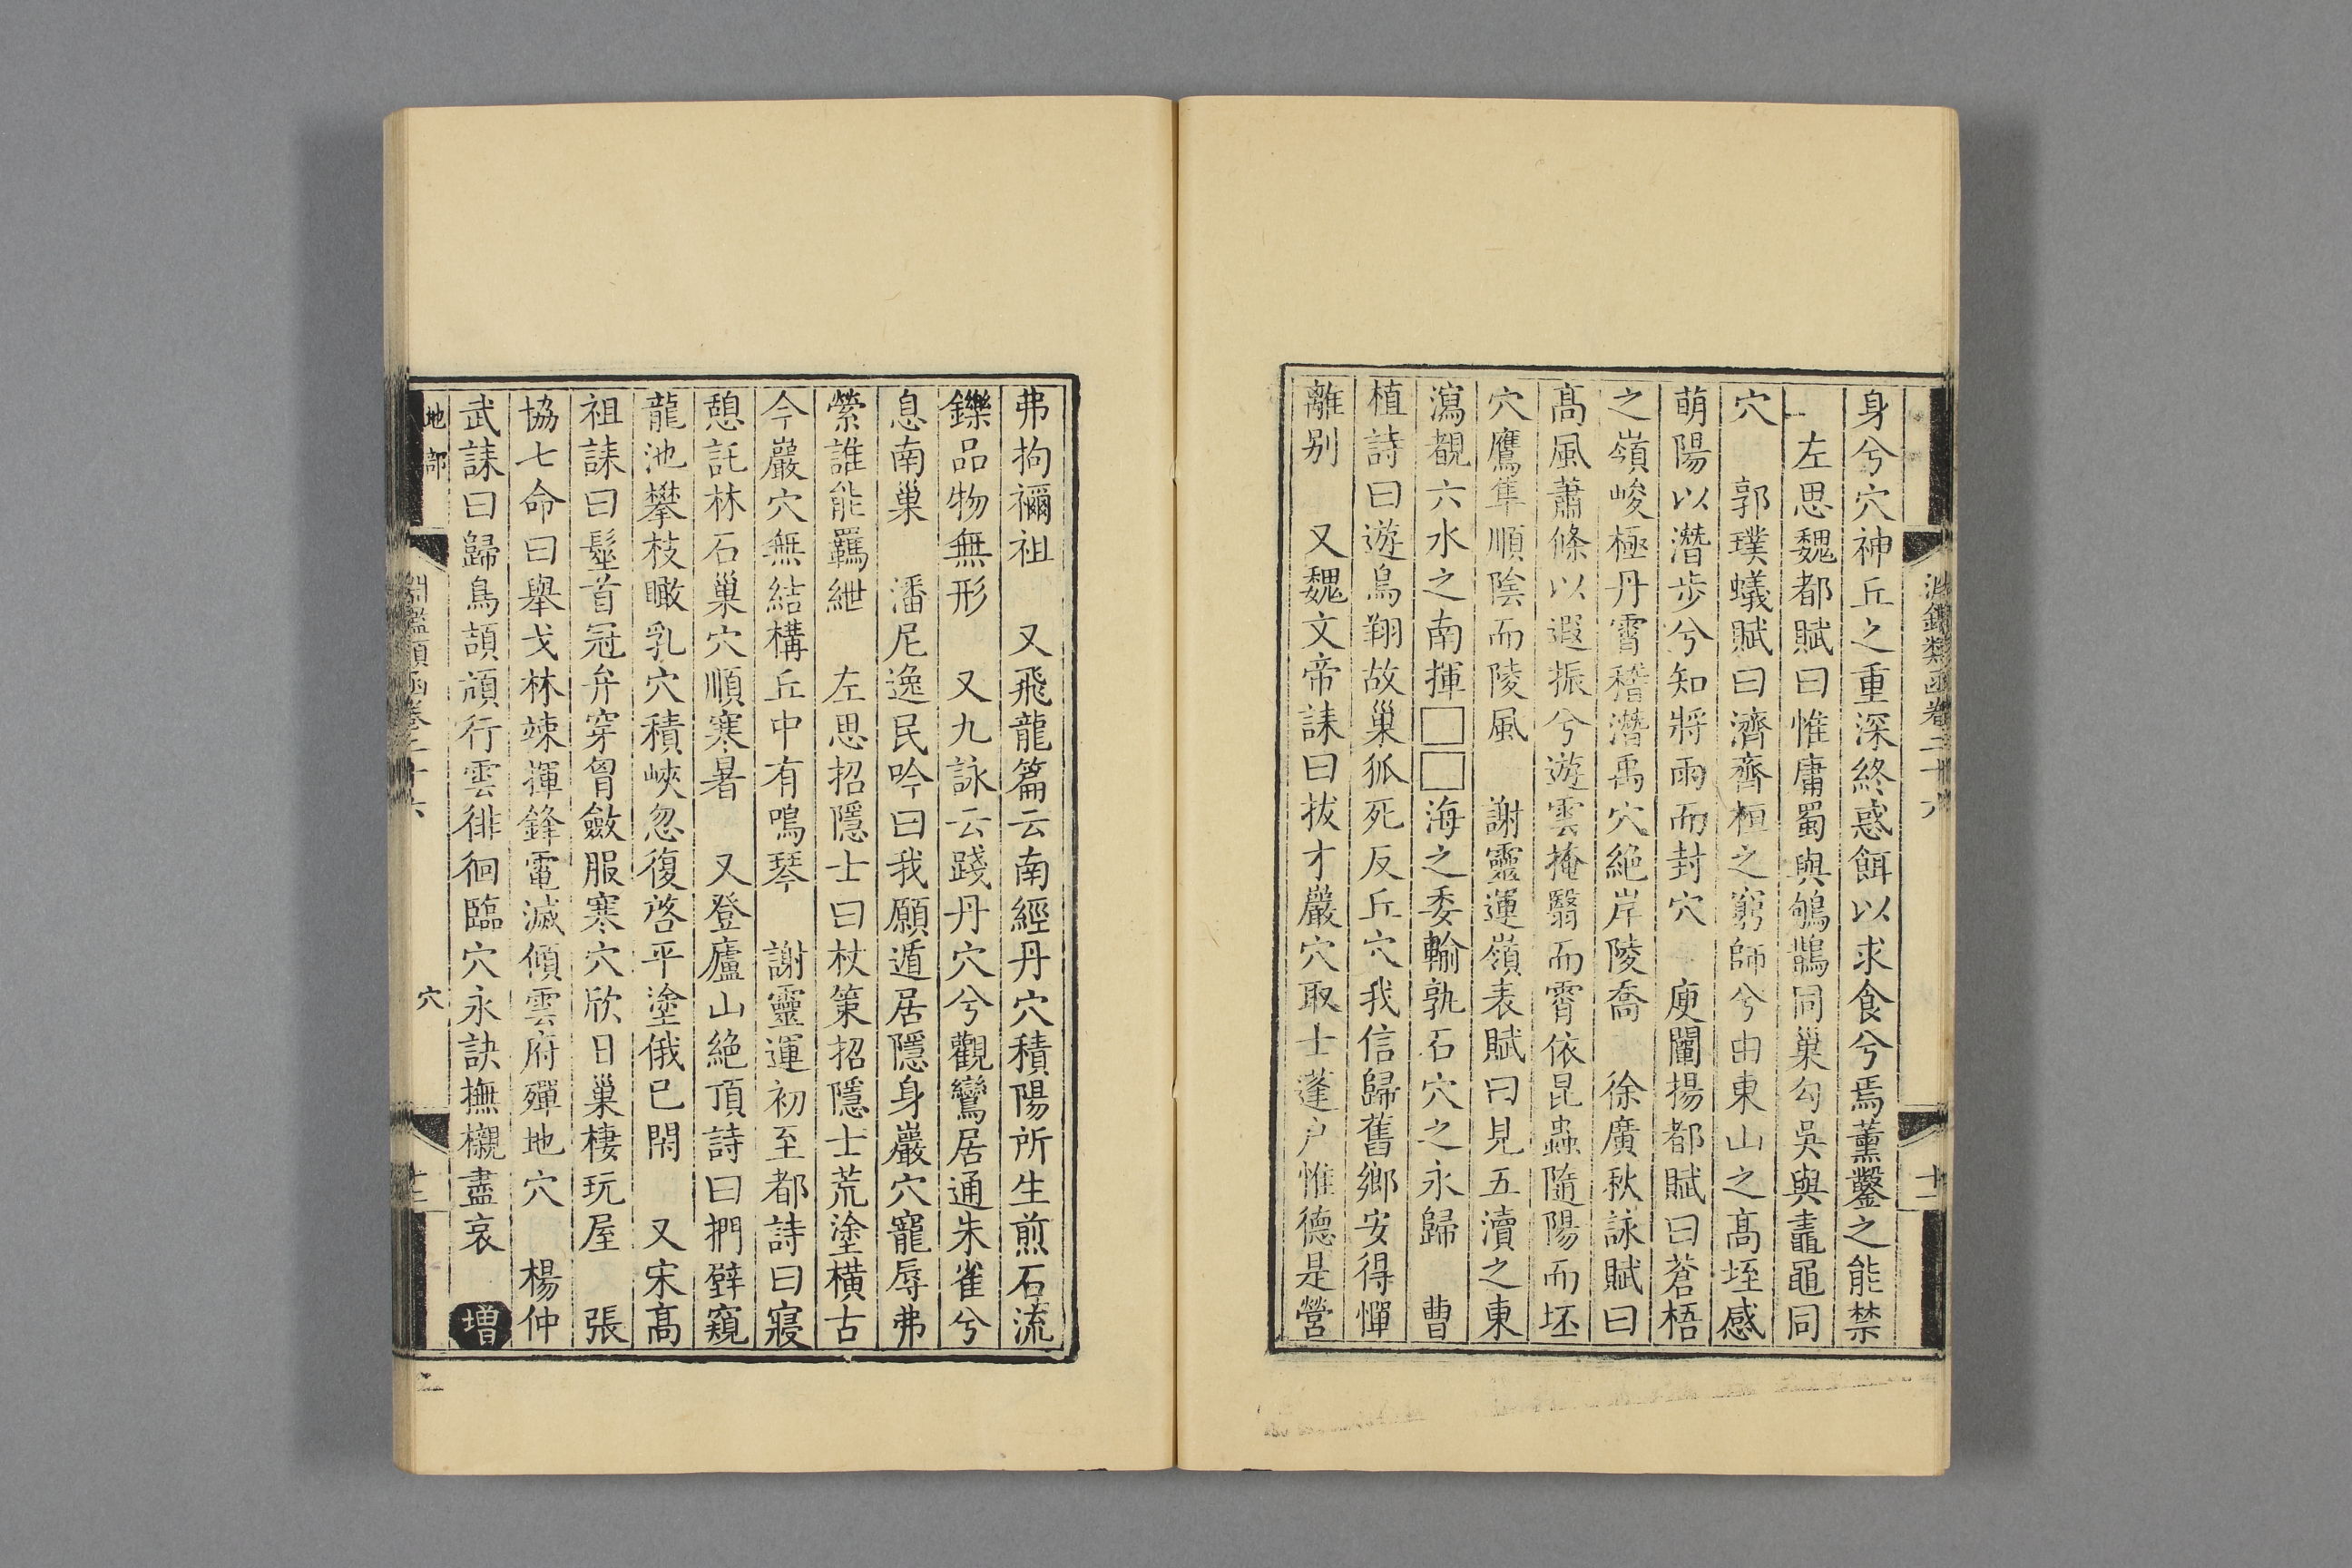 淵鑑類函卷二十六
十二
身兮穴神丘之重深終惑餌以求食兮焉薰鑿之能禁
左思魏都賦曰惟庸蜀與鴝鵲同巢勾吳與鼃黽同
穴　郭璞蟻賦曰濟齊桓之窮師兮由東山之高垤感
萌陽以潛步兮知將雨而封穴　庾闡揚都賦曰蒼梧
之嶺峻極丹霄稽潛禹穴絶岸陵喬　徐廣秋詠賦曰
高風蕭條以遐振兮遊雲掩翳而霄依昆蟲隨陽而坯
穴鷹隼順陰而陵風　謝靈運嶺表賦曰見五瀆之東
瀉覩六水之南揮□□海之委輸孰石穴之永歸　曹
植詩曰遊鳥翔故巢狐死反丘穴我信歸舊鄉安得憚
離别　又魏文帝誄曰拔才巖穴取士蓬户惟德是營
弗拘禰祖　又飛龍篇云南經丹穴積陽所生煎石流
鑠品物無形　又九詠云踐丹穴兮觀鸞居通朱雀兮
息南巢　潘尼逸民吟曰我願遁居隱身巖穴寵辱弗
縈誰能羈紲　左思招隱士曰杖策招隱士荒塗横古
今巖穴無結構丘中有鳴琴　謝靈運初至都詩曰寢
憩託林石巢穴順寒暑　又登廬山絶頂詩曰捫壁窺
龍池攀枝瞰乳穴積峽忽復啓平塗俄已閉　又宋高
祖誄曰髽首冠弁穿胷斂服寒穴欣日巢棲玩屋　張
協七命曰舉戈林竦揮鋒電滅傾雲府殫地穴　楊仲
武誄曰歸鳥頡頏行雲徘徊臨穴永訣撫櫬盡哀　增
地部
淵鑑類函卷二十六
穴
十三